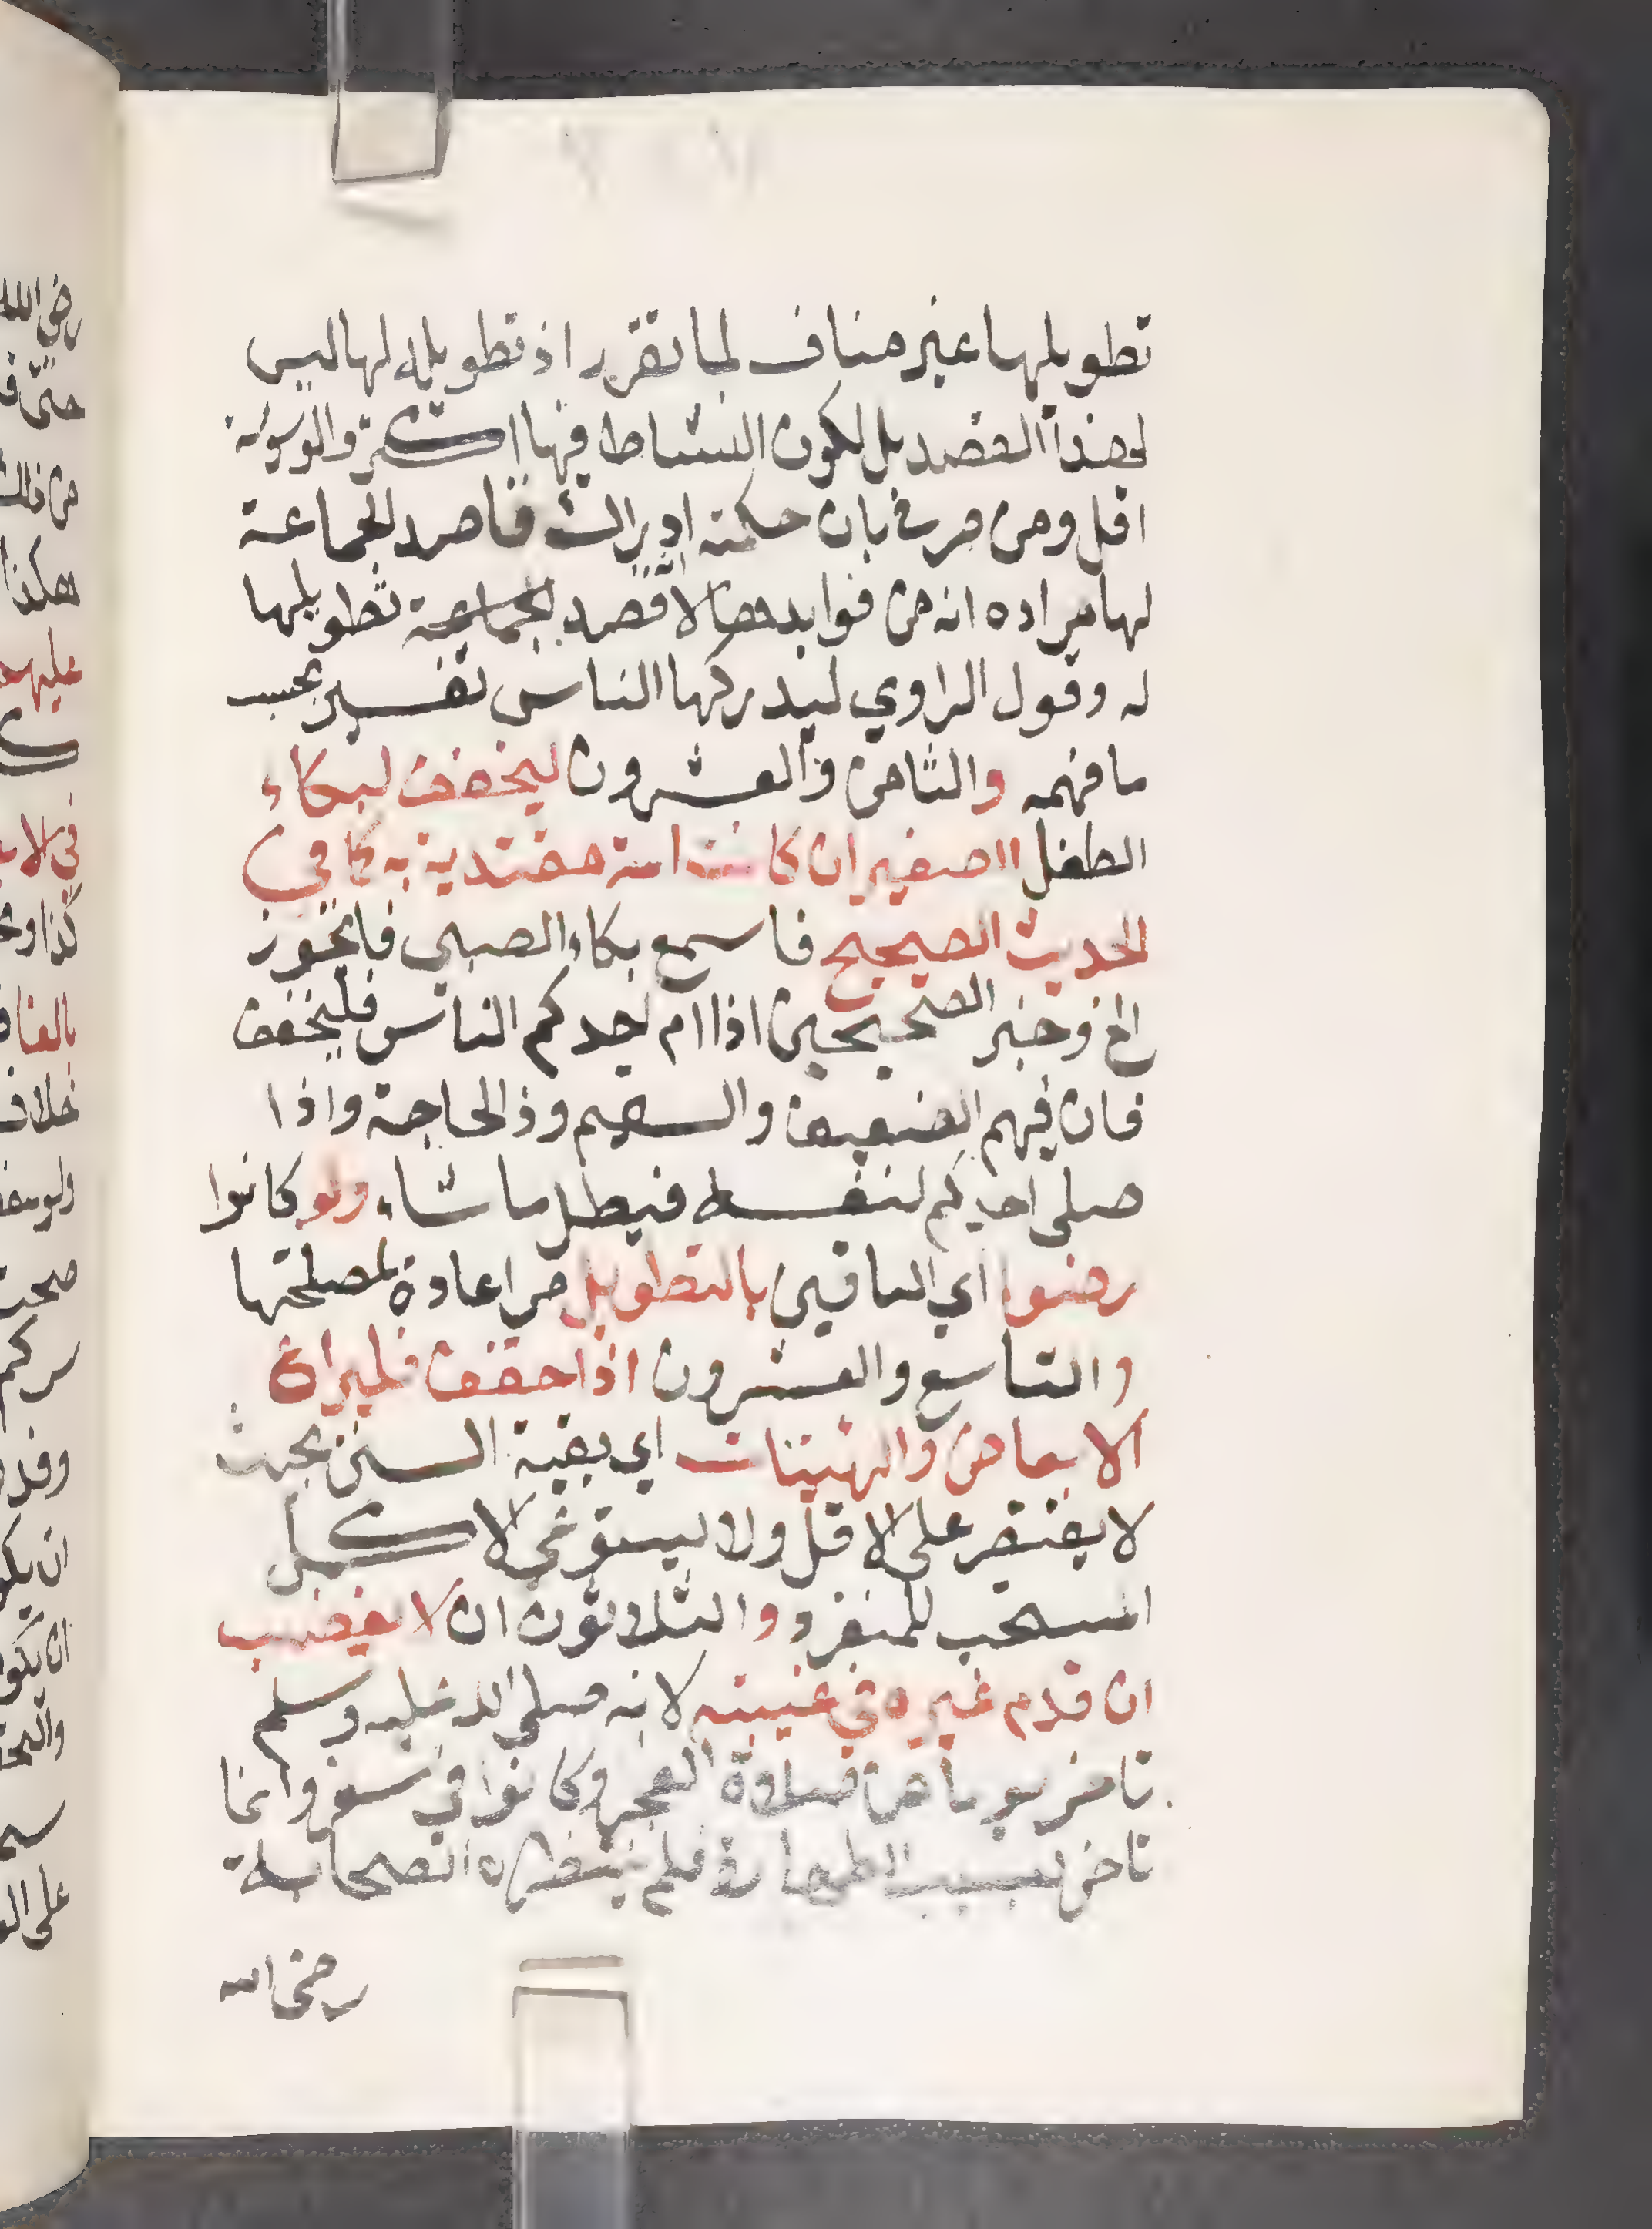 تطويلها غير مناف لما تقرر اذ تطويله لها ليس
لهذا القصد بل لكون النشاط فيها اكثر والوسوسة
اقل ومن مر في بان حكمته ادراك قاصد الجماعة
لها مراده انه من فوايدها لا قصد الجماعة تطويلها
له وقول الراوي ليدركها الناس تفسير بحسب
ما فهمه والثامن والعشرون ليخفف لبكاء
الطفل الصغير ان كانت امه مقتدية به كما في
الحديث الصحيح فاسمع بكاء الصبي فاتجوز
الخ وخبر الصحيحين اذا ام احدكم الناس فليخفف
فان فيهم الضعيف والسقيم وذا الحاجة واذا
صلى احدكم لنفسه فيطل ما شاء ولو كانوا
رضوا اي الباقين بالتطويل مراعاة لمصلحتها
والتاسع والعشرون اذا خفف فليراع
الابعاض والهيئات اي بقية السنن بحيث
لا يقتصر على الاقل ولا يستوفي الاكمل
المستحب للمنفرد والثلاثون ان لا يغضب
ان قدم غيره في غيبته لانه صلى الله عليه وسلم
تاخر يوما من صلاة الفجر وكانوا في سفر وانما
تاخر بسبب الطهارة فلم ينتظره الصحابة
رضي الله